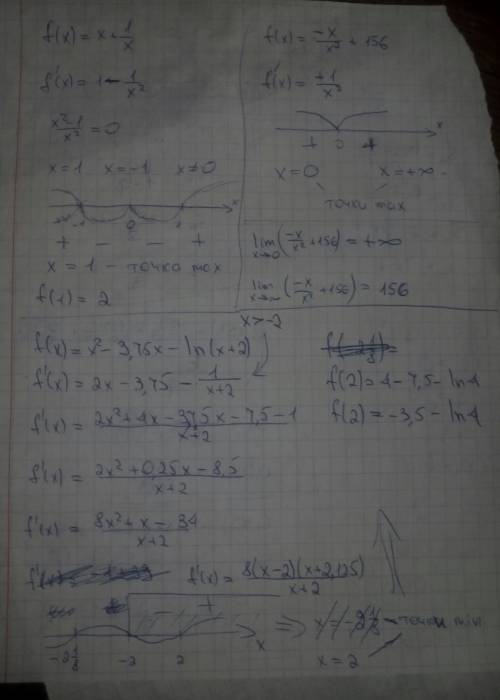 f(x) = x + 1/x
f'(x) = 1 - 1/x²
x²-1/x² = 0
x = 1 x = -1 x ≠ 0
x
-1 0 1
+ - - +
x = 1 - точка max
f(1) = 2
f(x) = -x/x² + 156
f'(x) = +1/x²
x
+ 0 +
x = 0 x = +∞
точки max
lim x→0 (-x/x² + 156) = +∞
lim x→∞ (-x/x² + 156) = 156
x > -2
f(x) = x² - 3,75x - ln(x+2)
f'(x) = 2x - 3,75 - 1/x+2
f'(x) = 2x² + 4x - 3,75x - 7,5 - 1/x+2
f'(x) = 2x² + 0,25x - 8,5/x+2
f'(x) = 8x² + x - 34/x+2
f'(x) = 8(x-2)(x+2,125)/x+2
f(2) = 4 - 7,5 - ln4
f(2) = -3,5 - ln4
- +
-2 1/8 -2 2 x
⇒ x = -2 1/8 - точки min
x = 2